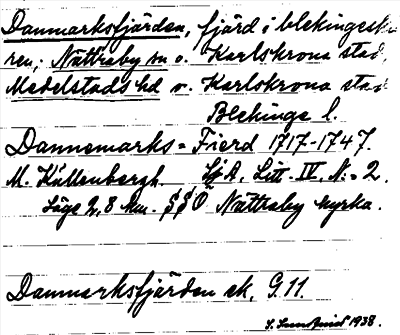 Danmarksfjärden, fjärd i blekingeskä
ren; Nättraby sn o. Karlskrona stad,
Medelstads hd o. Karlskrona stad
Blekinge l.
Dannemarks = Fierd 1717-1747.
M. Källenbergh. Sjk, Litt. IV, N:= 2.
Läge 2,8 km. SSO Nättraby kyrka.
Danmarksfjärden ek. G.11.
1938.